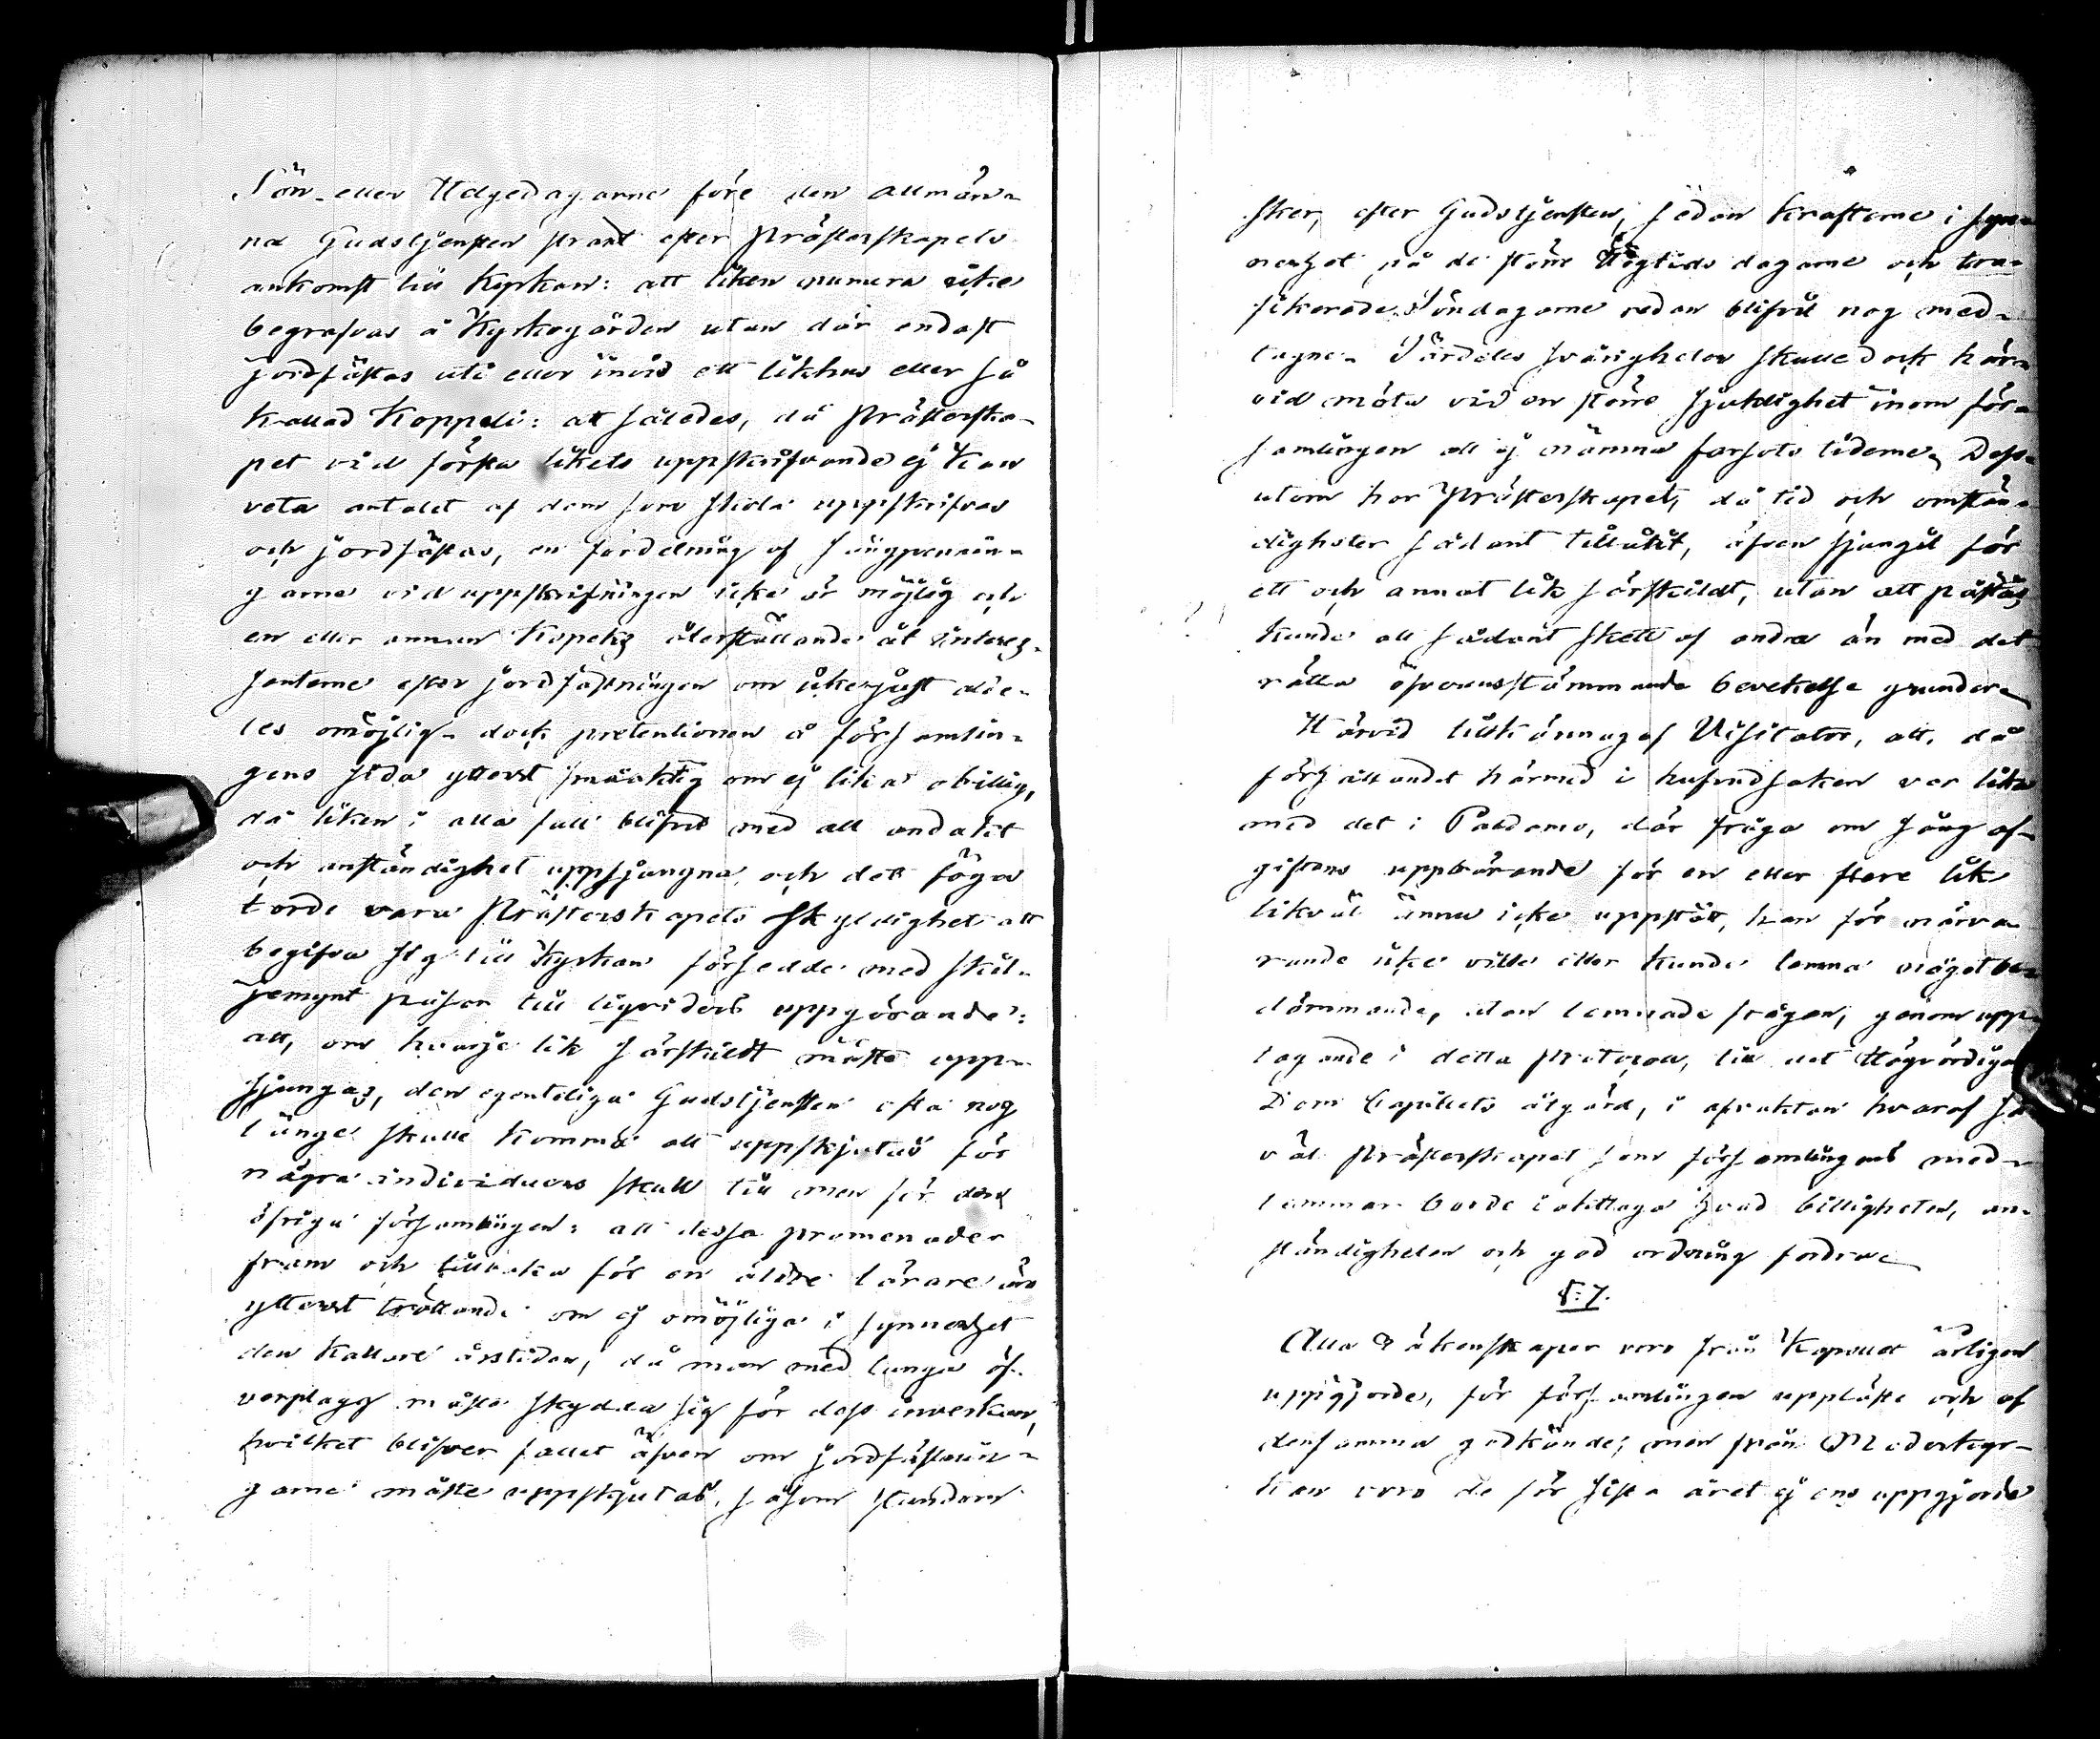 Sön- eller Helgedagarne före den allmän-
na Gudstjensten strax efter Presterskapets
ankomst till Kyrkan: att liken numera icke
begrafvas å Kyrkogården utan där endast
jordfästas uti eller invid ett likhus eller så
kallad Koppeli: att således, då Prästerska-
pet vid första likets uppskrifvande ej kan
veta antalet af dem som skola uppskrifvas
och jordfästas, en fördelning af sångpennin-
garne vid uppskrifningen icke är möjlig och
en eller annan Kopeks återställande åt intres-
senterne efter jordfästningen om icke just alde-
les omöjlig- dock pretentionen å försámlin-
gens sida ytterst småaktig om ej lika obillig,
då liken i alla fall blifvit med all andakt
och anständighet uppsjungna, och det föga
torde vara Prästerskapets skyldighet att
begifva sig till Kyrkan försedde med skil-
jemynt påsar till liqviders uppgörande:
att, om hvarje lik särskildt måste upp-
sjungas, den egenteliga Gudstjensten ofta nog
länge skulle komma att uppskjutas för
några individuers skull till men för den
öfriga församlingen: att dessa promenader
fram och tillbaka för en äldre lärare äro
ytterst tröttande om ej omöjliga i synnerhet
den kallare årstiden, då man med långa öf-
verplagg måste skydda sig för dess inverkan,
hvilket blifver fallet äfven om jordfästnin-
garne måste uppskjutas, såsom stundom
sker, efter Gudstjensten, sedan krafterne i syn-
nerhet på de större Högtids dagarne och
Söndagarne redan blifvit nog med-
tagne. Särdeles svårigheter skulle dock här-
vid möta vid en större sjuklighet inom för-
samlingen att ej nämna farsots tiderne. Dess-
utom har Prästerskapet, då tid och omstän-
digheter sådant tillåtit, äfven sjungit för
ett och annat lik särskildt, utan att påstås
kunde att sådant skett af andra än med det
rätta öfverensstämmande bevekelse grunder.
Härvid tillkännagaf Visitator, att, då
förhållandet härmed i hufvudsaken var lika
med det i Padasmo, där fråga om sång af-
giftens uppbärande för en eller flere lik
likväl ännu icke uppstått, han för närva-
rande icke ville eller kunde lemna något be-
dömmande, utan lemnade frågan, genom upp-
tagande i detta Protocoll, till det Högvördiga
Dom Capitlets åtgärd, i afvaktan hvaraf så-
väl Prästerskapet som församlingens med-
lemmar borde iakttaga hvad billigheten, an-
ständigheten och god ordning fordra.
§: 7.
Alla Räkenskaper voro från Kapellet årligen
uppgjorde, för församlingen uppläste och af
densamma godkände; men från Moderkyr-
kan voro de för sista året ej ens uppgjorde